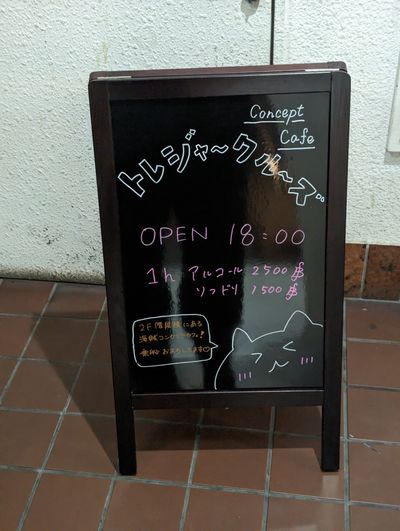 Concept
Cafe
トレジャ〜クル〜ズ
OPEN 18:00
1h アルコール 2500
ソフドリ 1500
2F 階段横にある
海賊コンセプトカフェ!
お待ちしてます♡